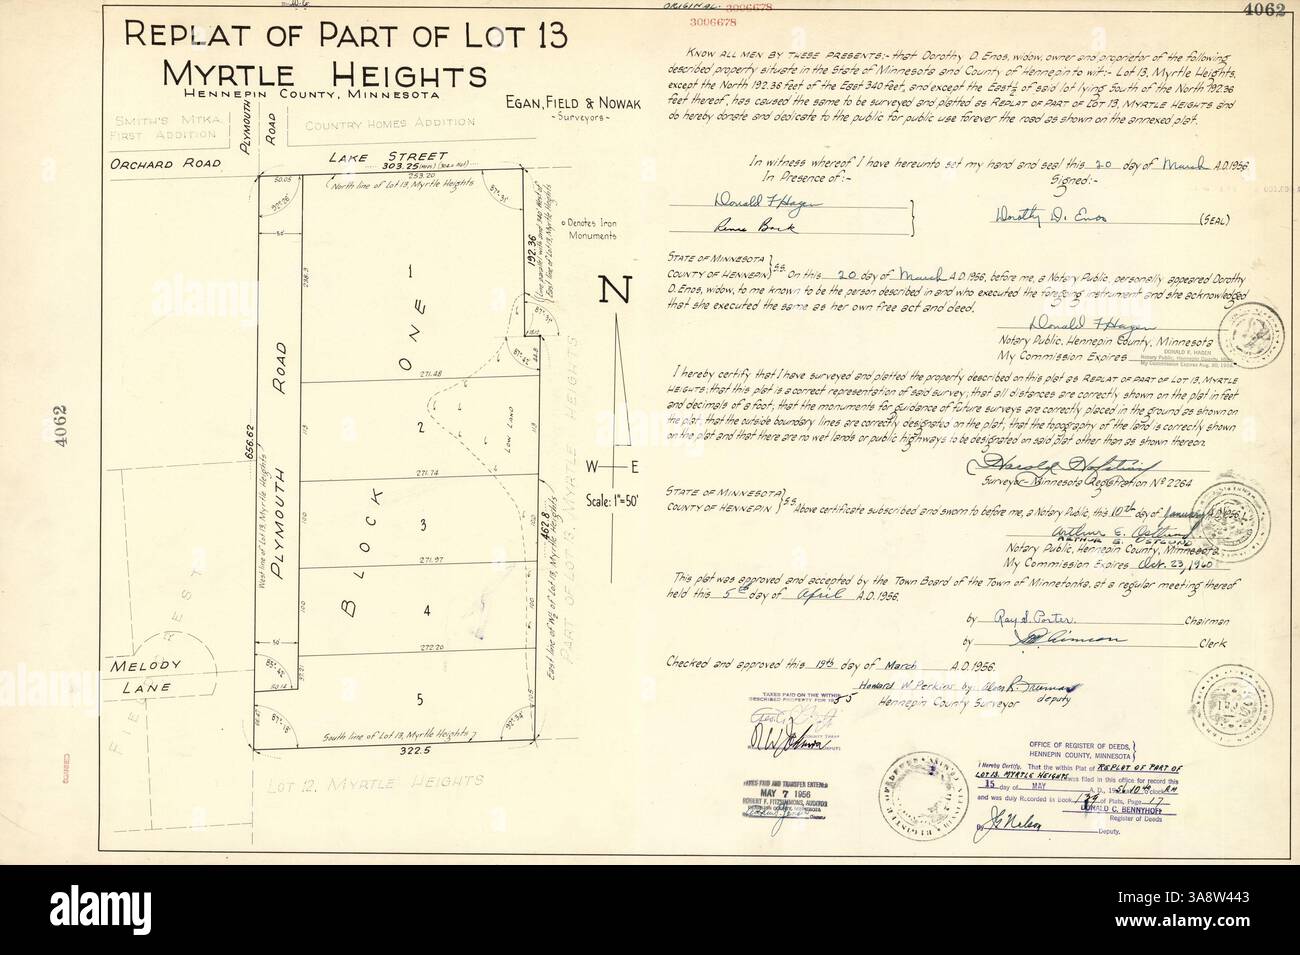 ORIGINAL 3006678
3006678
4062
REPLAT OF PART OF LOT 13
MYRTLE HEIGHTS
HENNEPIN COUNTY, MINNESOTA
EGAN, FIELD & NOWAK
-SURVEYORS-
SMITH'S MTKA.
FIRST ADDITION
PLYMOUTH
ROAD
COUNTRY HOMES ADDITION
ORCHARD ROAD
LAKE STREET
303.25
50.05
253.20
North line of Lot 13, Myrtle Heights
192.36
o Denotes Iron
Monuments
N
W E
Scale: 1"=50'
1
BLOCK ONE
271.48
2
LOW LAND
113
271.74
3
100
271.97
4
100
272.20
5
PLYMOUTH ROAD
656.62
West line of Lot 13, Myrtle Heights
462.8
East line of W½ of Lot 13, Myrtle Heights
PART OF LOT 13, MYRTLE HEIGHTS
MELODY
LANE
FIELD CREST
50.14
South line of Lot 13, Myrtle Heights
322.5
LOT 12, MYRTLE HEIGHTS
4062
KNOW ALL MEN BY THESE PRESENTS:- that Dorothy D. Enos, widow, owner and proprietor of the following
described property situate in the State of Minnesota and County of Hennepin to wit:- Lot 13, Myrtle Heights,
except the North 192.36 feet of the East 340 feet, and except the East ½ of said lot lying South of the North 192.36
feet thereof, has caused the same to be surveyed and platted as REPLAT OF PART OF LOT 13, MYRTLE HEIGHTS and
do hereby donate and dedicate to the public for public use forever the road as shown on the annexed plat.
In witness whereof I have hereunto set my hand and seal this 20 day of March A.D. 1956
In Presence of:- Signed:-
Donald F Hagen
Dorothy D. Enos (SEAL)
STATE OF MINNESOTA
COUNTY OF HENNEPIN S.S. On this 20 day of March A.D. 1956, before me, a Notary Public, personally appeared Dorothy
D. Enos, widow, to me known to be the person described in and who executed the foregoing instrument and she acknowledged
that she executed the same as her own free act and deed.
Donald F Hagen
Notary Public, Hennepin County, Minnesota
My Commission Expires
I hereby certify that I have surveyed and platted the property described on this plat as REPLAT OF PART OF LOT 13, MYRTLE
HEIGHTS; that this plat is a correct representation of said survey; that all distances are correctly shown on the plat in feet
and decimals of a foot; that the monuments for guidance of future surveys are correctly placed in the ground as shown on
the plat; that the outside boundary lines are correctly designated on the plat; that the topography of the land is correctly shown
on the plat and that there are no wet lands or public highways to be designated on said plat other than as shown thereon.
Surveyor-Minnesota Registration No 2264
STATE OF MINNESOTA
COUNTY OF HENNEPIN S.S. Above certificate subscribed and sworn to before me, a Notary Public, this 10th day of January A.D. 1956.
Arthur E. Ostlund
ARTHUR E. OSTLUND
Notary Public, Hennepin County, Minnesota
My Commission Expires Oct. 23, 1960
This plat was approved and accepted by the Town Board of the Town of Minnetonka, at a regular meeting thereof
held this 5th day of April A.D. 1956.
by Ray S. Porter. Chairman
by Clerk
Checked and approved this 19th day of March A.D. 1956.
Howard W. Perkins by
Hennepin County Surveyor deputy
TAXES PAID ON THE WITHIN
DESCRIBED PROPERTY FOR 1955
TAXES PAID AND TRANSFER ENTERED
MAY 7 1956
ROBERT F. FITZSIMMONS, AUDITOR
OFFICE OF REGISTER OF DEEDS,
HENNEPIN COUNTY, MINNESOTA
I Hereby Certify, That the within Plat of REPLAT OF PART OF
LOT 13, MYRTLE HEIGHTS was filed in this office for record this
15 day of MAY A. D., 1956 at 10 o'clock AM
and was duly Recorded in Book 139 of Plats, Page 17
DONALD C. BENNYHOFF
Register of Deeds
By J G Nelson Deputy.
alamy
Image ID: 3A8W443
www.alamy.com